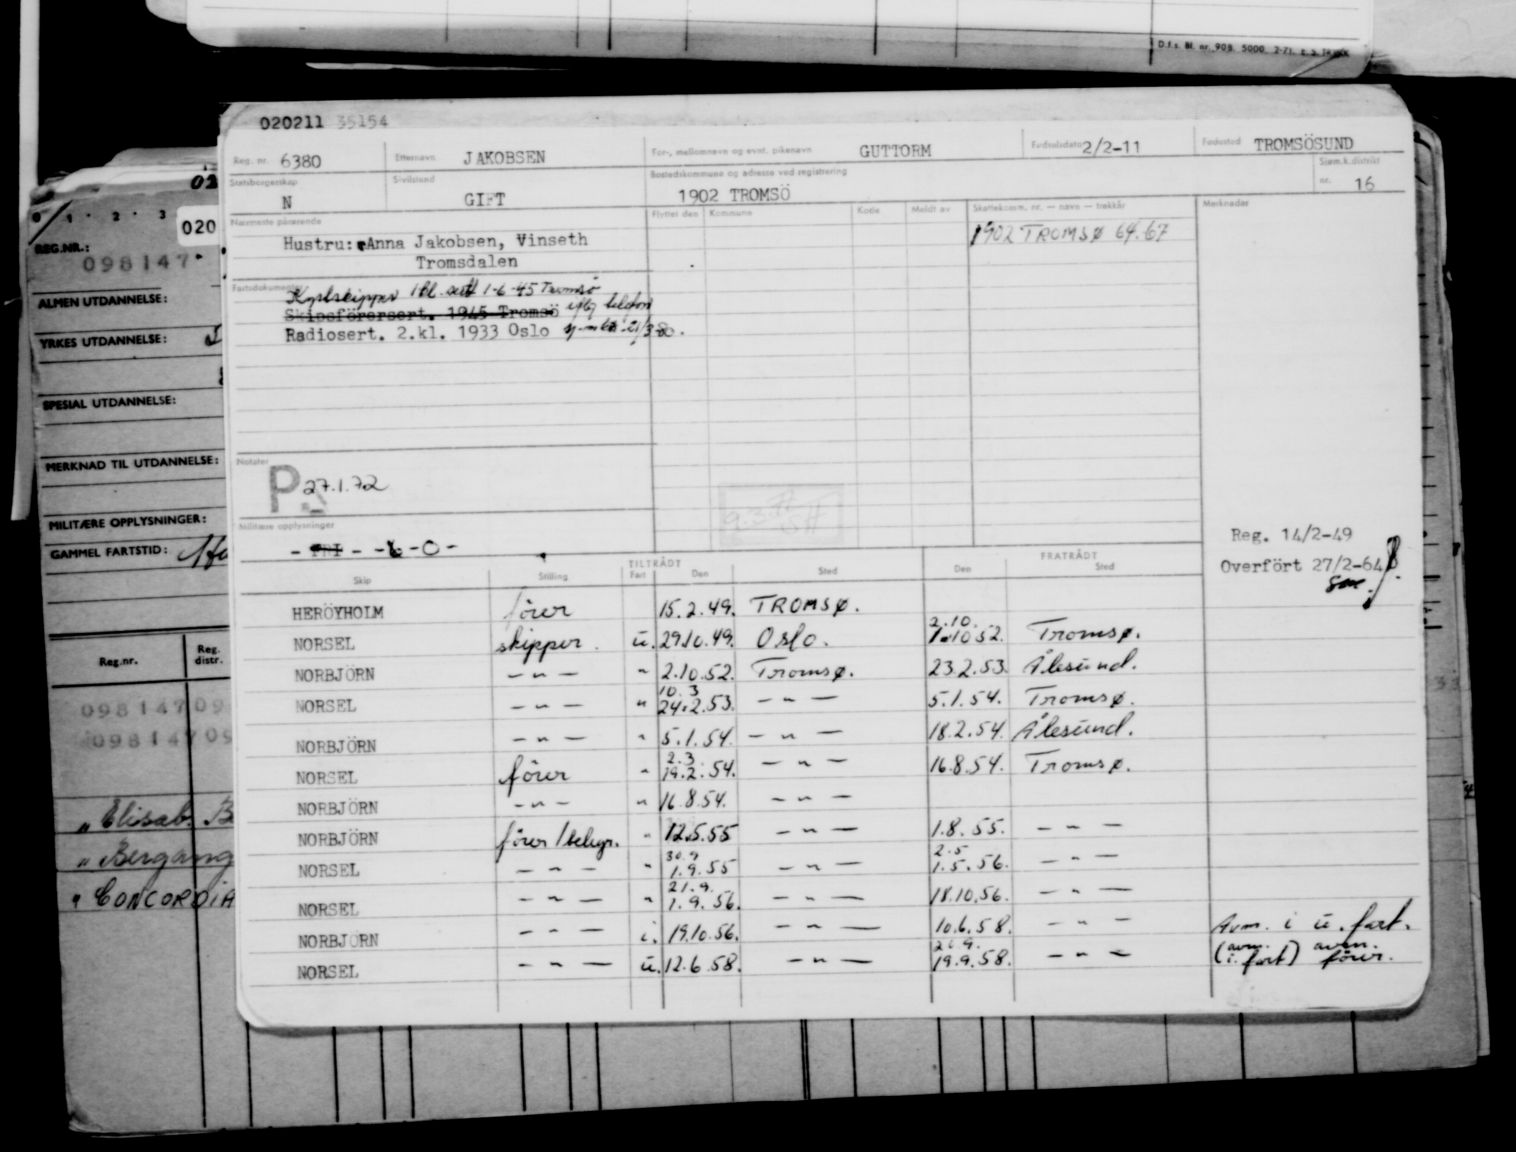 D.f.s. Bl. nr. 908. 5000. 2-71.
020211 35154
Reg. nr. 6380 Etternavn JAKOBSEN For-, mellomnavn og evnt. pikenavn GUTTORM Fødselsdato 2/2-11 Fødested TROMSÖSUND
Statsborgerskap N Sivilstand GIFT Bostedskommune og adresse ved registrering 1902 TROMSÖ Sjøm.k.distrikt nr. 16
Nærmeste pårørende Flyttet den Kommune Kode Meldt av Skattekomm. nr. — navn — trekkår Merknader
Hustru: Anna Jakobsen, Vinseth 1902 TROMSØ 64.67
Tromsdalen
Fartsdokumenter
Kystskipper 1-6-45 Tromsø
Skipsförersert. 1945 Tromsö
Radiosert. 2.kl. 1933 Oslo
Notater
P 27.1.72
Militære opplysninger
- FRI - -6-0-
Reg. 14/2-49
Overfört 27/2-64
TILTRÅDT FRATRÅDT
Skip Stilling Fart Den Sted Den Sted
HERÖYHOLM fører 15.2.49. TROMSØ.
NORSEL skipper. u. 29.10.49. Oslo. 2.10. 1.10.52. Tromsø.
NORBJÖRN — " — " 2.10.52. Tromsø. 23.2.53. Ålesund.
NORSEL — " — " 10.3 24.2.53. — " — 5.1.54. Tromsø.
NORBJÖRN — " — " 5.1.54. — " — 18.2.54. Ålesund.
NORSEL fører " 2.3. 19.2.54. — " — 16.8.54. Tromsø.
NORBJÖRN — " — " 16.8.54. — " —
NORBJÖRN fører/telegr. " 12.5.55 — " — 1.8.55. — " —
NORSEL — " — " 30.9 1.9.55 — " — 2.5 1.5.56. — " —
NORSEL — " — " 21.9. 1.9.56. — " — 18.10.56. — " —
NORBJÖRN — " — i. 19.10.56. — " — 10.6.58. — " — Avm. i u. fart.
NORSEL — " — u. 12.6.58. — " — 19.9.58. — " — (avm. i. fart) avm. fører.
REG.NR.:
098147
ALMEN UTDANNELSE:
YRKES UTDANNELSE:
SPESIAL UTDANNELSE:
MERKNAD TIL UTDANNELSE:
MILITÆRE OPPLYSNINGER:
GAMMEL FARTSTID:
Reg.nr. Reg. distr.
098147 09
098147 09
" Elisab. B
" Bergang
" CONCORDIA